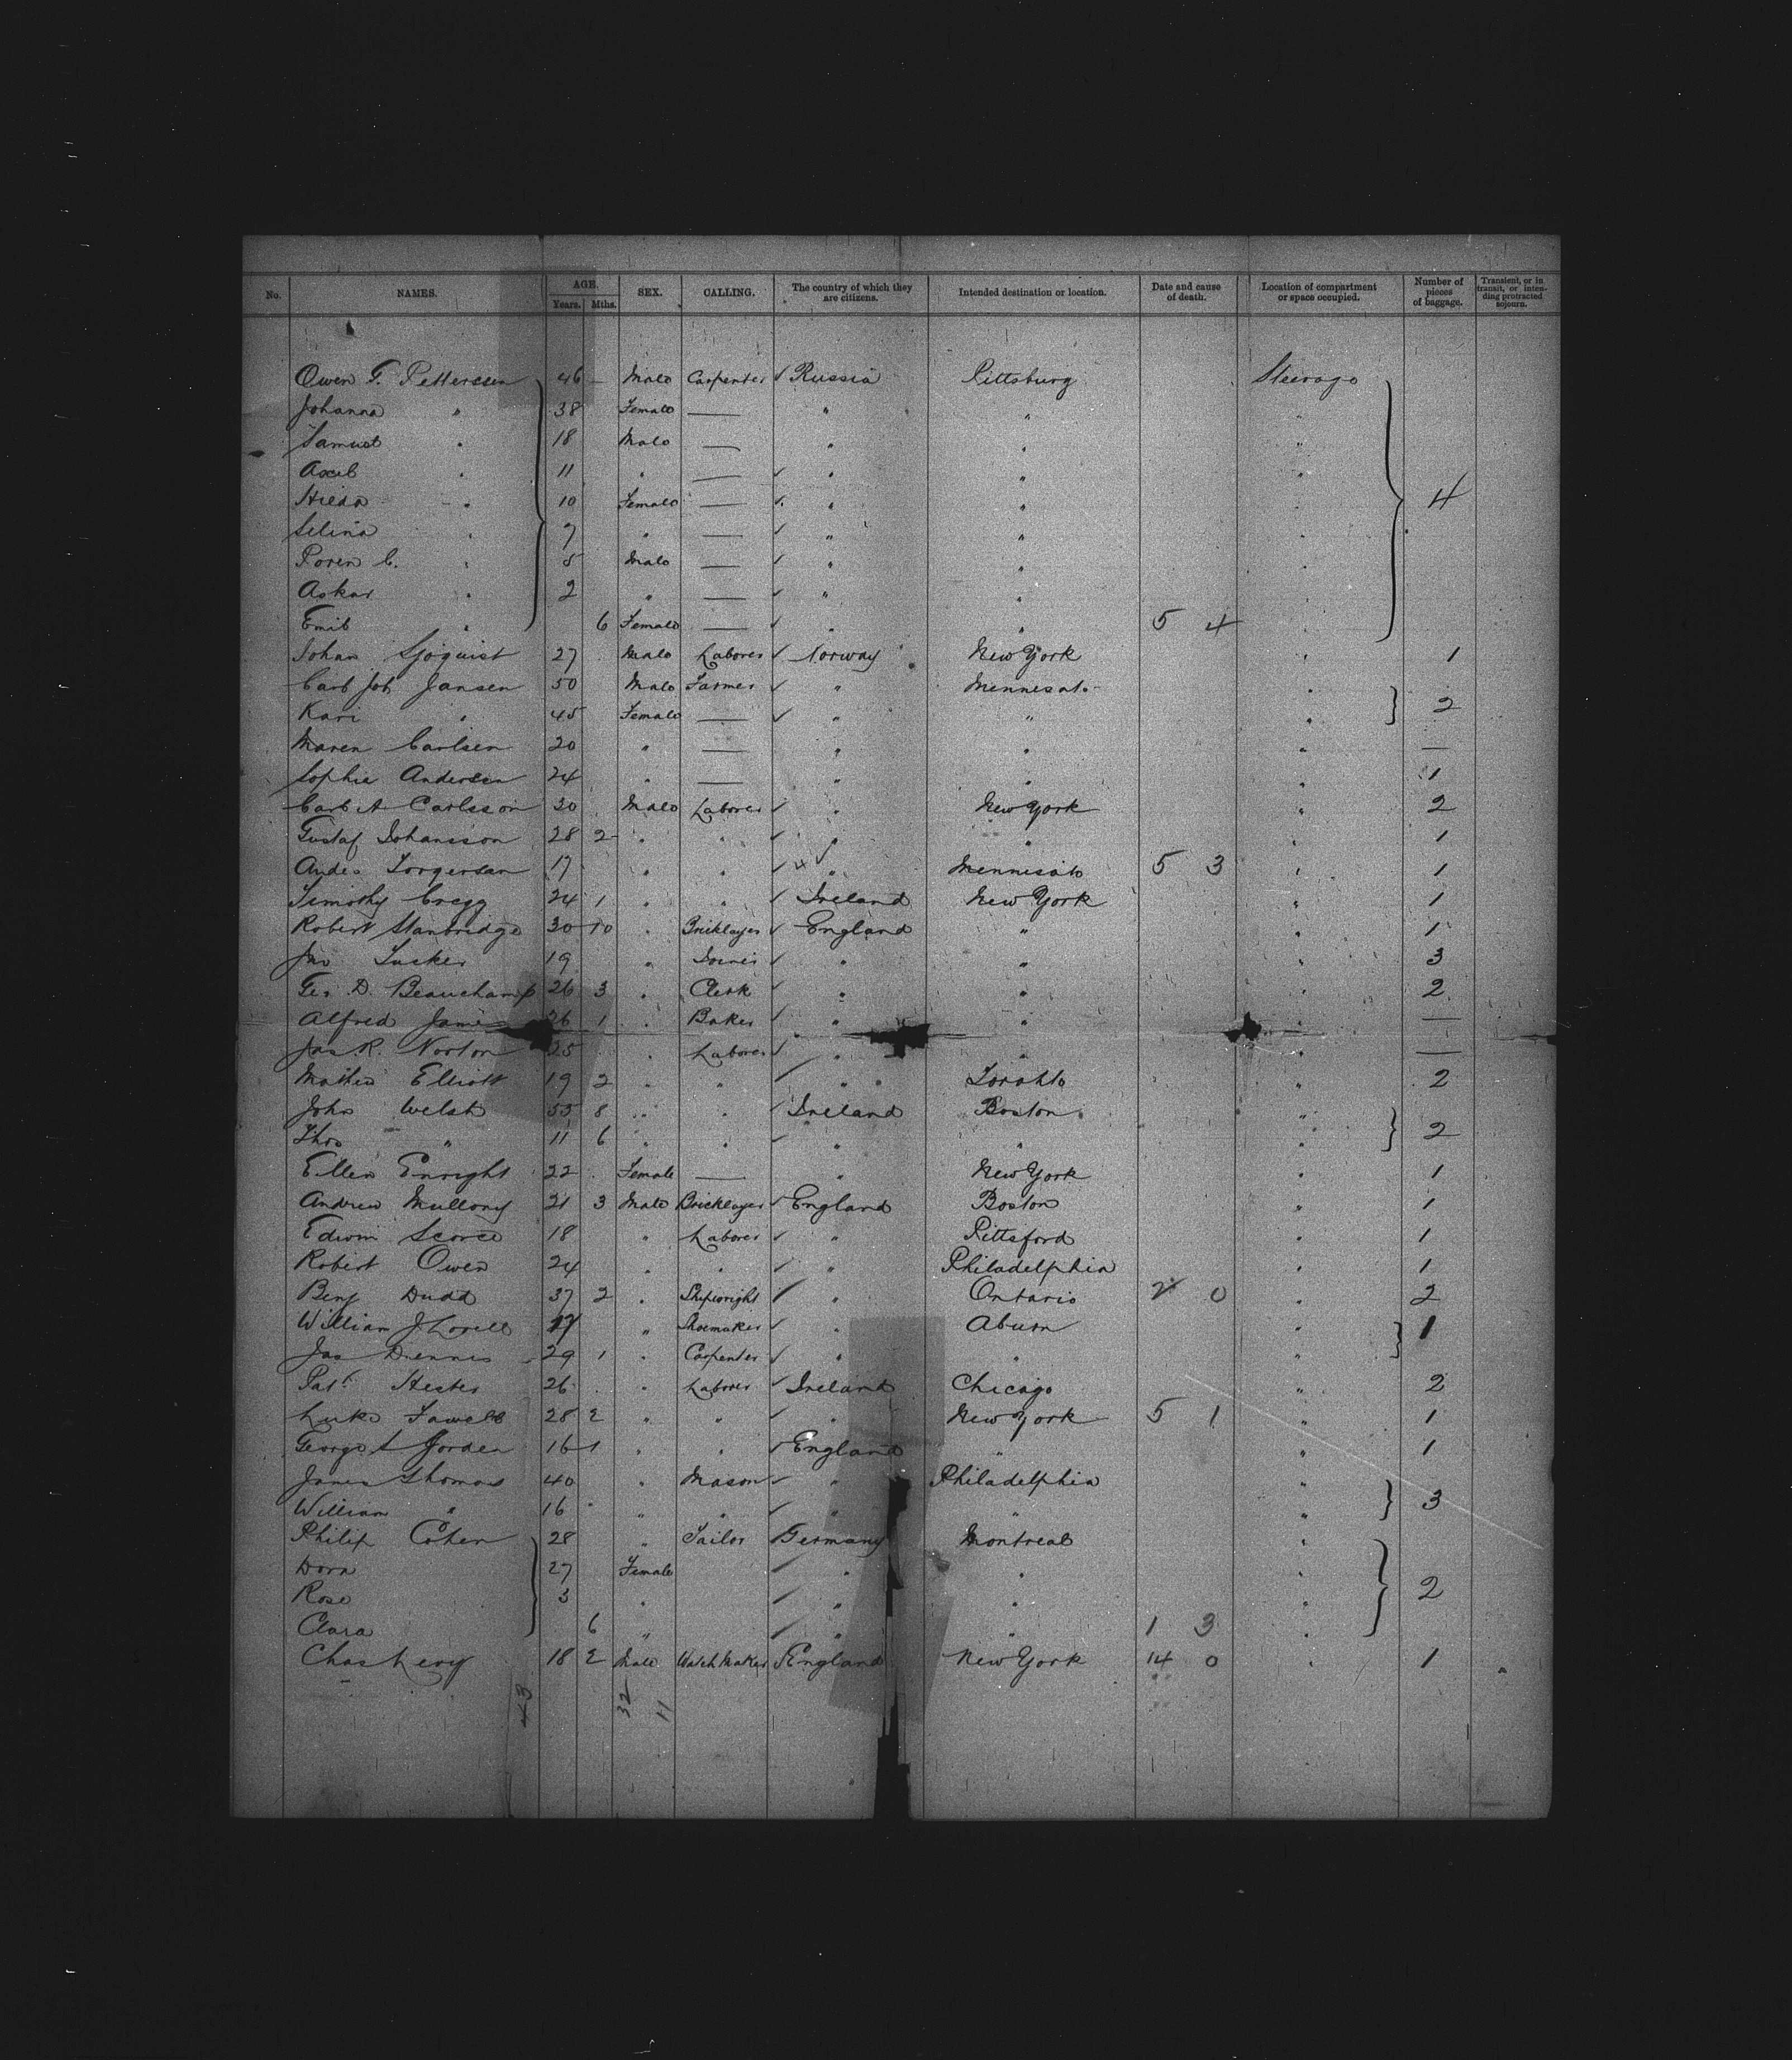 No. NAMES. AGE. Years. Mths. SEX. CALLING. The country of which they are citizens. Intended destination or location. Date and cause of death. Location of compartment or space occupied. Number of pieces of baggage. Transient, or in transit, or intending protracted sojourn.
Owen F. Petterssen 46 – Male Carpenter ✓ Russia Pittsburg Steerage
Johanna " 38 Female — " " "
Samuel " 18 Male — " " "
Axel " 11 " — ✓ " " "
Hilda " 10 Female — ✓ " " " 4
Selina " 7 " — ✓ " " "
Soren C. " 5 Male — ✓ " " "
Askar " 2 " — ✓ " " "
Emil " 6 Female — ✓ " " 5 4 "
Johan Sjöquist 27 Male Laborer ✓ Norway New York " 1
Carl Joh Jansen 50 Male Farmer ✓ " Mennesato "
Kari " 45 Female — ✓ " " " 2
Maren Carlsen 20 " — " " " —
Sophie Andersen 24 " — " " " 1
Carl A. Carlsson 30 Male Laborer ✓ " New York " 2
Gustaf Johansson 28 2 " " ✓ " " " 1
Andrs Torgersen 17 " " ✓ " Mennisato 5 3 " 1
Timothy Cregg 24 1 " " ✓ Ireland New York " 1
Robert Stanbridge 30 10 " Bricklayer ✓ England " " 1
Jno Tucker 19 " Joiner ✓ " " " 3
Geo. D. Beauchamp 26 3 " Clerk ✓ " " " 2
Alfred James 26 1 " Baker ✓ " " " —
Jas R. Norton 25 " Laborer ✓ " " " —
Mathew Elliott 19 2 " " ✓ " Toronto " 2
John Welsh 55 8 " " ✓ Ireland Boston "
Thos " 11 6 " " ✓ " " " 2
Ellen Enright 22 Female — " New York " 1
Andrew Mullony 21 3 Male Bricklayer ✓ England Boston " 1
Edwin Scorce 18 " Laborer ✓ " Pittsford " 1
Robert Owen 24 " " ✓ " Philadelphia " 1
Benj Dudd 37 2 " Shipwright ✓ " Ontario 2 0 " 2
William J Lovell 17 " Shoemaker ✓ " Aburn " 1
Jas Diennis 29 1 " Carpenter ✓ " " "
Patk Hester 26 " Laborer ✓ Ireland Chicago " 2
Luke Fawell 28 2 " " ✓ " New York 5 1 " 1
George A Jorden 16 1 " " ✓ England " " 1
James Thomas 40 " Mason ✓ " Philadelphia "
William " 16 " " ✓ " " " 3
Philip Cohen 28 " Tailor Germany Montreal "
Dora 27 Female ✓ " " "
Rose 3 " ✓ " " " 2
Clara 6 " ✓ " " 1 3 "
Chas Levy 18 2 Male Watch Maker ✓ England New York 14 0 " 1
43 32 11